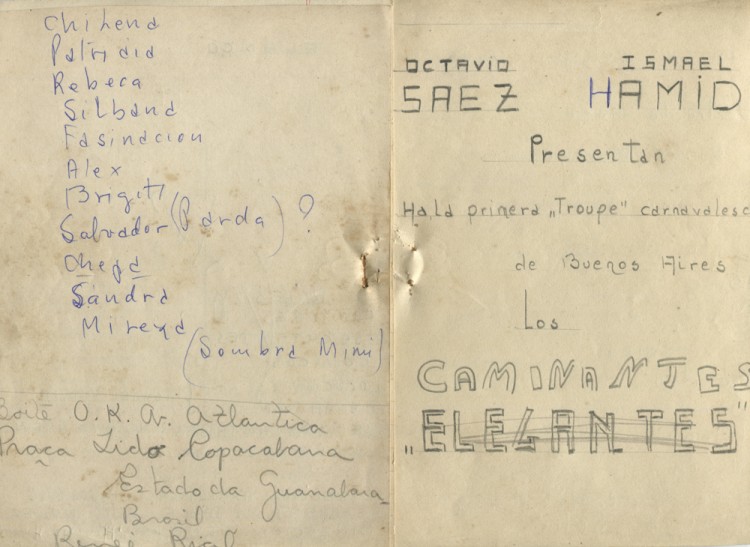 Chilena
Patrydia
Rebeca
Silband
Fasinacion
Alex
Brigitt
Salvador (Parda) ?
Cheja
Sandra
Mireya
(Sombra Mimi)
Boite O.K. Av. Atlantica
Praça Lido Copacabana
Estado da Guanabara
Brasil
OCTAVIO ISMAEL
SAEZ HAMID
Presentan
Ha, La primera „Troupe" carnavalesc
de Buenos Aires
Los
CAMINANTES
„ELEGANTES"